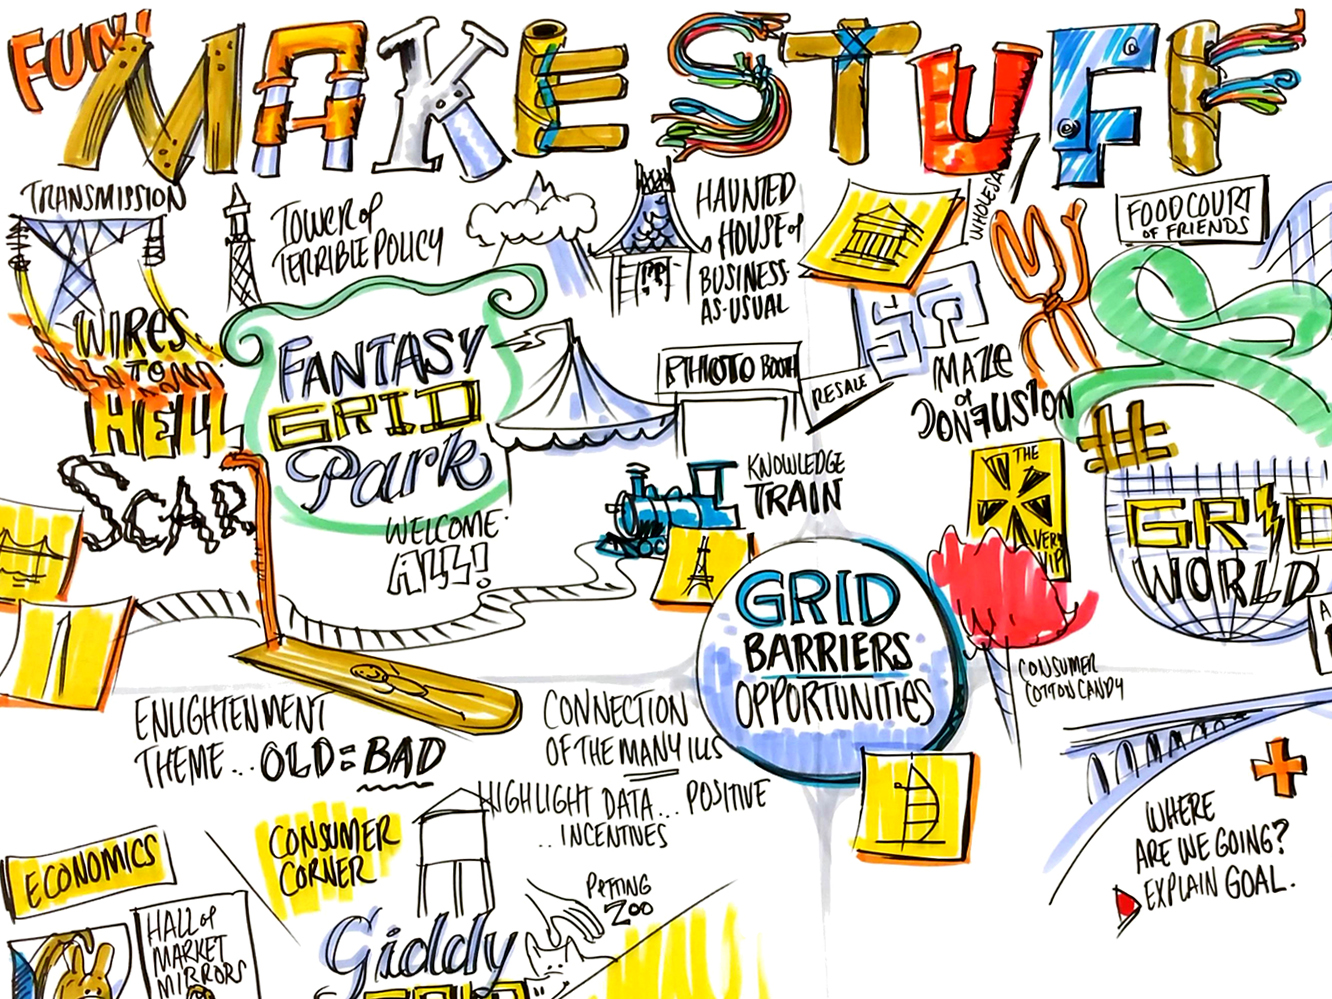 FUN!
MAKE STUFF
TRANSMISSION
WIRES
TO
HELL
SCAR
TOWER of
TERRIBLE POLICY
FANTASY
GRID
Park
WELCOME
HAUNTED
HOUSE of
BUSINESS
AS-USUAL
PHOTO BOOTH
KNOWLEDGE
TRAIN
RESALE
MAZE
of
CONFUSION
FOOD COURT
OF FRIENDS
THE
VERY
VIP
#
GRID
WORLD
GRID
BARRIERS
OPPORTUNITIES
CONSUMER
COTTON CANDY
ENLIGHTENMENT
THEME... OLD = BAD
CONNECTION
OF THE MANY ILLS
HIGHLIGHT DATA... POSITIVE
.. INCENTIVES
WHERE
ARE WE GOING?
EXPLAIN GOAL.
ECONOMICS
CONSUMER
CORNER
PETTING
ZOO
HALL of
MARKET
MIRRORS
Giddy